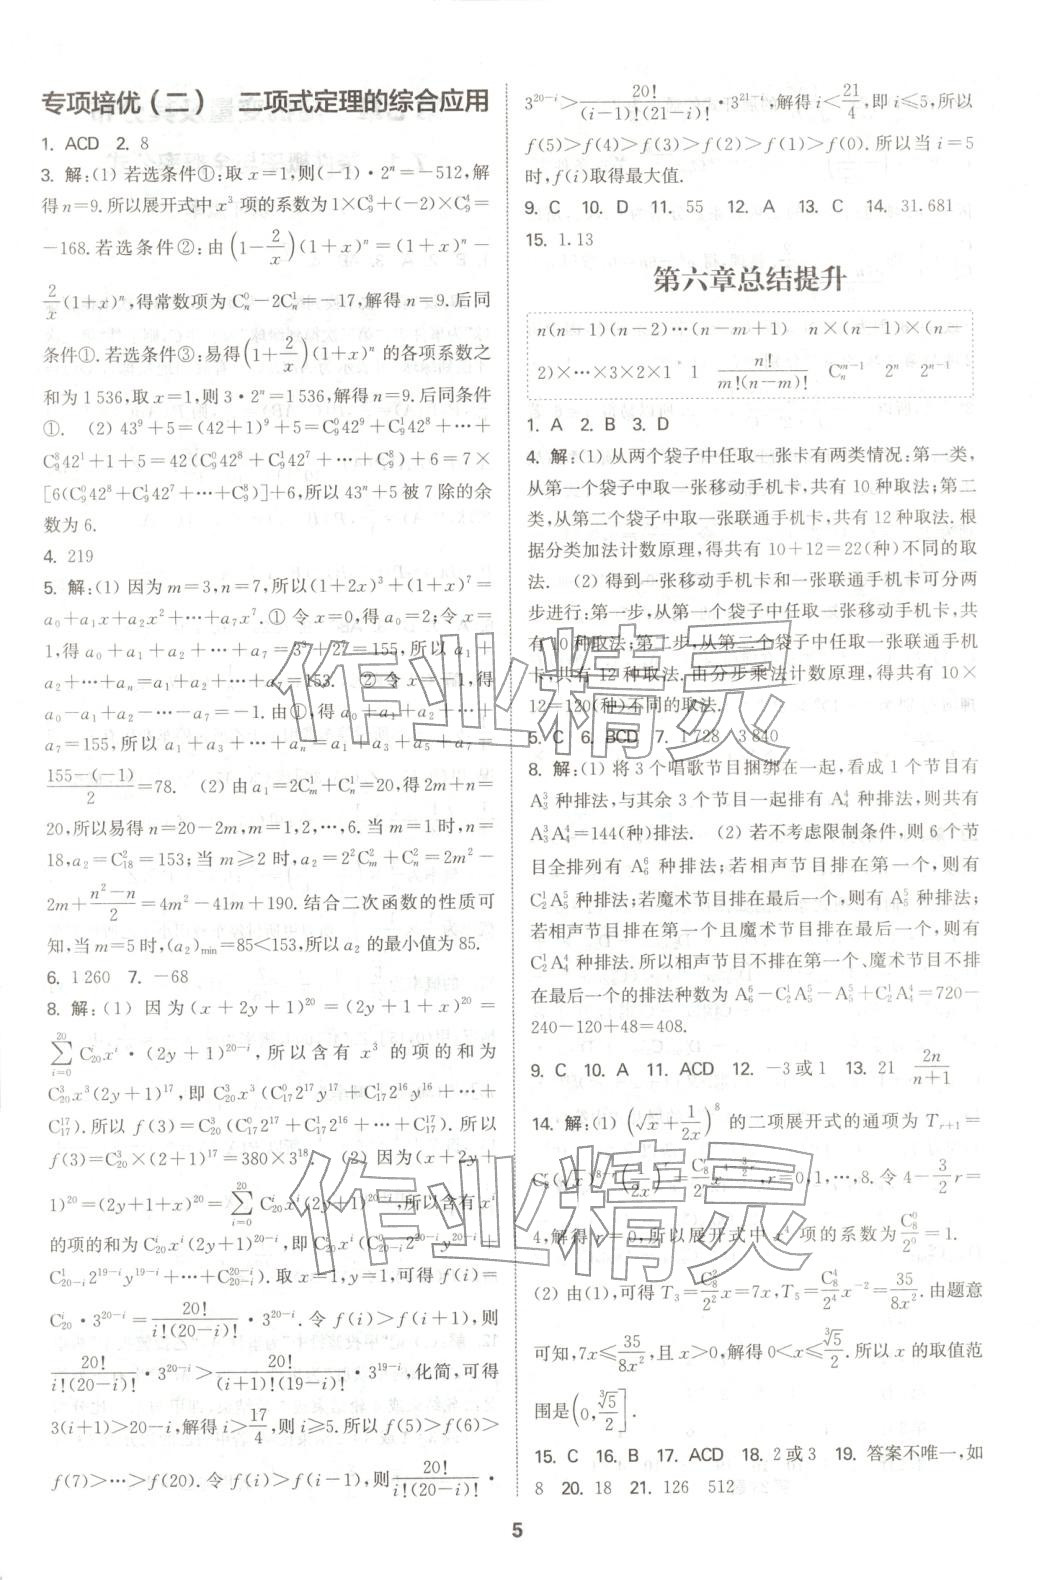 专项培优(二)　二项式定理的综合应用
1. ACD　2. 8
3. 解:(1) 若选条件①:取 x=1,则(-1)·2ⁿ=-512,解
得 n=9. 所以展开式中 x³ 项的系数为 1×C₉³+(-2)×C₉⁴=
-168. 若选条件②:由(1-2/x)(1+x)ⁿ=(1+x)ⁿ-
2/x(1+x)ⁿ,得常数项为 Cₙ⁰-2Cₙ¹=-17,解得 n=9. 后同
条件①. 若选条件③:易得(1+2/x)(1+x)ⁿ 的各项系数之
和为 1 536,则 3·2ⁿ=1 536,解得 n=9. 后同条件
①.　(2) 43⁹+5=(42+1)⁹+5=C₉⁰42⁹+C₉¹42⁸+…+
C₉⁸42¹+1+5=42(C₉⁰42⁸+C₉¹42⁷+…+C₉⁸)+6=7×
[6(C₉⁰42⁸+C₉¹42⁷+…+C₉⁸)]+6,所以 43ⁿ+5 被 7 除的余
数为 6.
4. 219
5. 解:(1) 因为 m=3,n=7,所以(1+2x)³+(1+x)⁷=
a₀+a₁x+a₂x²+…+a₇x⁷. ① 令 x=0,得 a₀=2;令 x=
1,得 a₀+a₁+a₂+…+a₇=3³+2⁷=155,所以 a₁+
a₂+…+aₙ=a₁+a₂+…+a₇=153.　② 令 x=-1,得
a₀-a₁+a₂-…-a₇=-1. 由①,得 a₀+a₁+a₂+…+
a₇=155,所以 a₁+a₃+…+aₙ=a₁+a₃+a₅+a₇=
(155-(-1))/2=78.　(2) 由 a₁=2Cₘ¹+Cₙ¹=20,得 2m+n=
20,所以易得 n=20-2m,m=1,2,…,6. 当 m=1 时,n=
18,a₂=C₁₈²=153;当 m≥2 时,a₂=2²Cₘ²+Cₙ²=2m²-
2m+(n²-n)/2=4m²-41m+190. 结合二次函数的性质可
知,当 m=5 时,(a₂)min=85<153,所以 a₂ 的最小值为 85.
6. 1 260　7. -68
8. 解:(1) 因为(x+2y+1)²⁰=(2y+1+x)²⁰=
∑_{i=0}^{20} C₂₀ⁱxⁱ·(2y+1)²⁰⁻ⁱ,所以含有 x³ 的项的和为
C₂₀³x³(2y+1)¹⁷,即 C₂₀³x³(C₁₇⁰2¹⁷y¹⁷+C₁₇¹2¹⁶y¹⁶+…+
C₁₇¹⁷). 所以 f(3)=C₂₀³(C₁₇⁰2¹⁷+C₁₇¹2¹⁶+…+C₁₇¹⁷). 所以
f(3)=C₂₀³×(2+1)¹⁷=380×3¹⁸.　(2) 因为(x+2y+
1)²⁰=(2y+1+x)²⁰=∑_{i=0}^{20} C₂₀ⁱxⁱ(2y+1)²⁰⁻ⁱ,所以含有 xⁱ
的项的和为 C₂₀ⁱxⁱ(2y+1)²⁰⁻ⁱ,即 C₂₀ⁱxⁱ(C₂₀₋ᵢ⁰2²⁰⁻ⁱy²⁰⁻ⁱ+
C₂₀₋ᵢ¹2¹⁹⁻ⁱy¹⁹⁻ⁱ+…+C₂₀₋ᵢ²⁰⁻ⁱ). 取 x=1,y=1,得 f(i)=
C₂₀ⁱ·3²⁰⁻ⁱ=20!/(i!(20-i)!)·3²⁰⁻ⁱ. 令 f(i)>f(i+1),则
20!/(i!(20-i)!)·3²⁰⁻ⁱ>20!/((i+1)!(19-i)!)·3¹⁹⁻ⁱ,化简,可得
3(i+1)>20-i,解得 i>17/4,则 i≥5. 所以 f(5)>f(6)>
f(7)>…>f(20). 令 f(i)>f(i-1),则20!/(i!(20-i)!)·
3²⁰⁻ⁱ>20!/((i-1)!(21-i)!)·3²¹⁻ⁱ,解得 i<21/4,即 i≤5,所以
f(5)>f(4)>f(3)>f(2)>f(1)>f(0). 所以当 i=5
时,f(i)取得最大值.
9. C　10. D　11. 55　12. A　13. C　14. 31.681
15. 1.13
第六章总结提升
n(n-1)(n-2)…(n-m+1)　n×(n-1)×(n-
2)×…×3×2×1　1　n!/(m!(n-m)!)　Cₙᵐ⁻¹　2ⁿ　2ⁿ⁻¹
1. A　2. B　3. D
4. 解:(1) 从两个袋子中任取一张卡有两类情况:第一类,
从第一个袋子中取一张移动手机卡,共有 10 种取法;第二
类,从第二个袋子中取一张联通手机卡,共有 12 种取法. 根
据分类加法计数原理,得共有 10+12=22(种)不同的取
法.　(2) 得到一张移动手机卡和一张联通手机卡可分两
步进行:第一步,从第一个袋子中任取一张移动手机卡,共
有 10 种取法;第二步,从第二个袋子中任取一张联通手机
卡,共有 12 种取法. 由分步乘法计数原理,得共有 10×
12=120(种)不同的取法.
5. C　6. BCD　7. 1 728　3 840
8. 解:(1) 将 3 个唱歌节目捆绑在一起,看成 1 个节目有
A₃³ 种排法,与其余 3 个节目一起排有 A₄⁴ 种排法,则共有
A₃³A₄⁴=144(种)排法.　(2) 若不考虑限制条件,则 6 个节
目全排列有 A₆⁶ 种排法;若相声节目排在第一个,则有
C₂¹A₅⁵ 种排法;若魔术节目排在最后一个,则有 A₅⁵ 种排法;
若相声节目排在第一个且魔术节目排在最后一个,则有
C₂¹A₄⁴ 种排法. 所以相声节目不排在第一个、魔术节目不排
在最后一个的排法种数为 A₆⁶-C₂¹A₅⁵-A₅⁵+C₂¹A₄⁴=720-
240-120+48=408.
9. C　10. A　11. ACD　12. -3或1　13. 21　2n/(n+1)
14. 解:(1) (√x+1/(2x))⁸ 的二项展开式的通项为 Tᵣ₊₁=
C₈ʳ(√x)⁸⁻ʳ(1/(2x))ʳ=(C₈ʳ/2ʳ)x^(4-(3/2)r),r=0,1,…,8. 令 4-(3/2)r=
4,解得 r=0,所以展开式中 x⁴ 项的系数为 C₈⁰/2⁰=1.
(2) 由(1),可得 T₃=(C₈²/2²)x=7x,T₅=(C₈⁴/2⁴)x⁻²=35/(8x²). 由题意
可知,7x≤35/(8x²),且 x>0,解得 0<x≤∛5/2. 所以 x 的取值范
围是(0,∛5/2].
15. C　16. B　17. ACD　18. 2或3　19. 答案不唯一,如
8　20. 18　21. 126　512
5
作业精灵
作业精灵